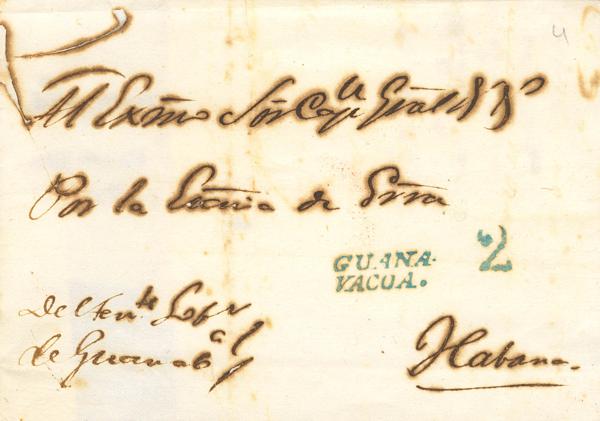 4
Al Exmo Sor Capn Gral
Por la Essria de Grra
GUANA-
VACOA.
2
Del Tente Gobr
de Guanaba
Habana.